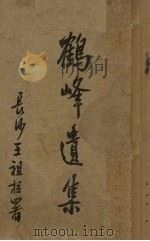 鶴峰遺集
長沙王祖柱署